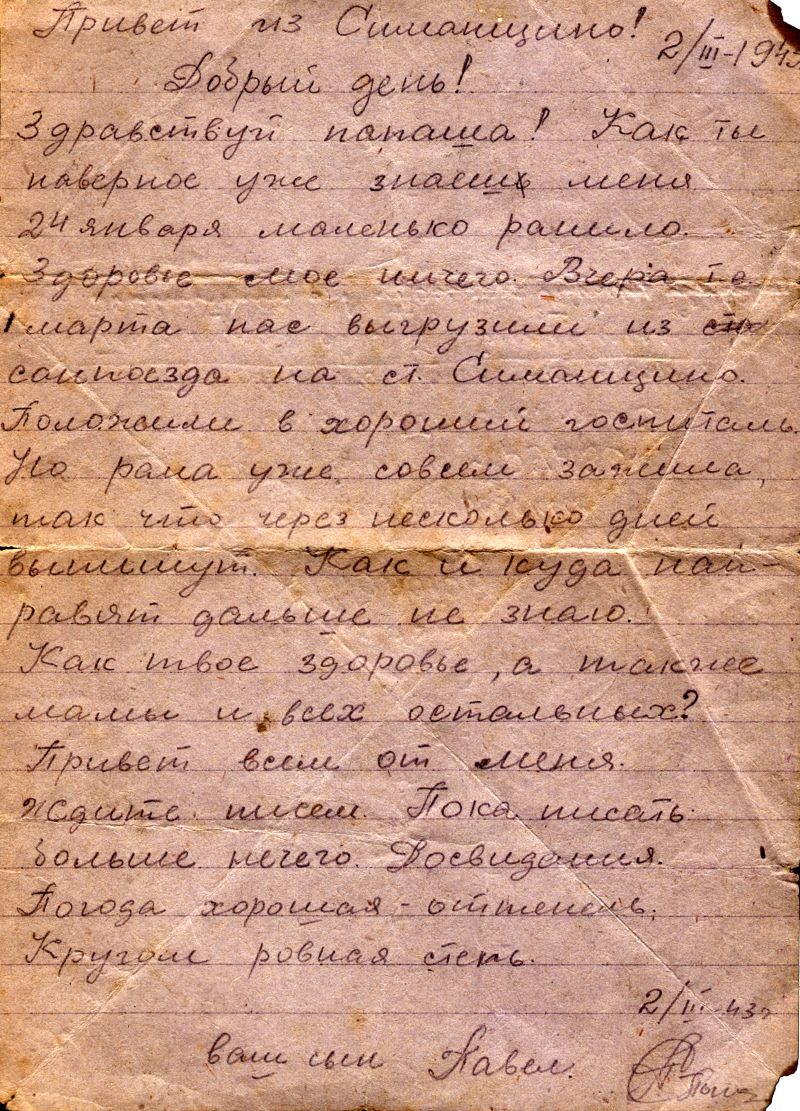 Привет из Симанщино!
2/III-1943
Добрый день!
Здравствуй папаша! Как ты
наверное уже знаешь меня
24 января маленько ранило.
Здоровье мое ничего. Вчера т.е.
1 марта нас выгрузили из
санпоезда на ст. Симанщино.
Положили в хороший госпиталь.
Но рана уже совсем зажила,
так что через несколько дней
выпишут. Как и куда нап-
равят дальше не знаю.
Как твое здоровье, а также
мамы и всех остальных?
Привет всем от меня.
Ждите писем. Пока писать
больше нечего. Досвидания.
Погода хорошая - оттепель.
Кругом ровная степь.
2/III-43г
ваш сын Павел.